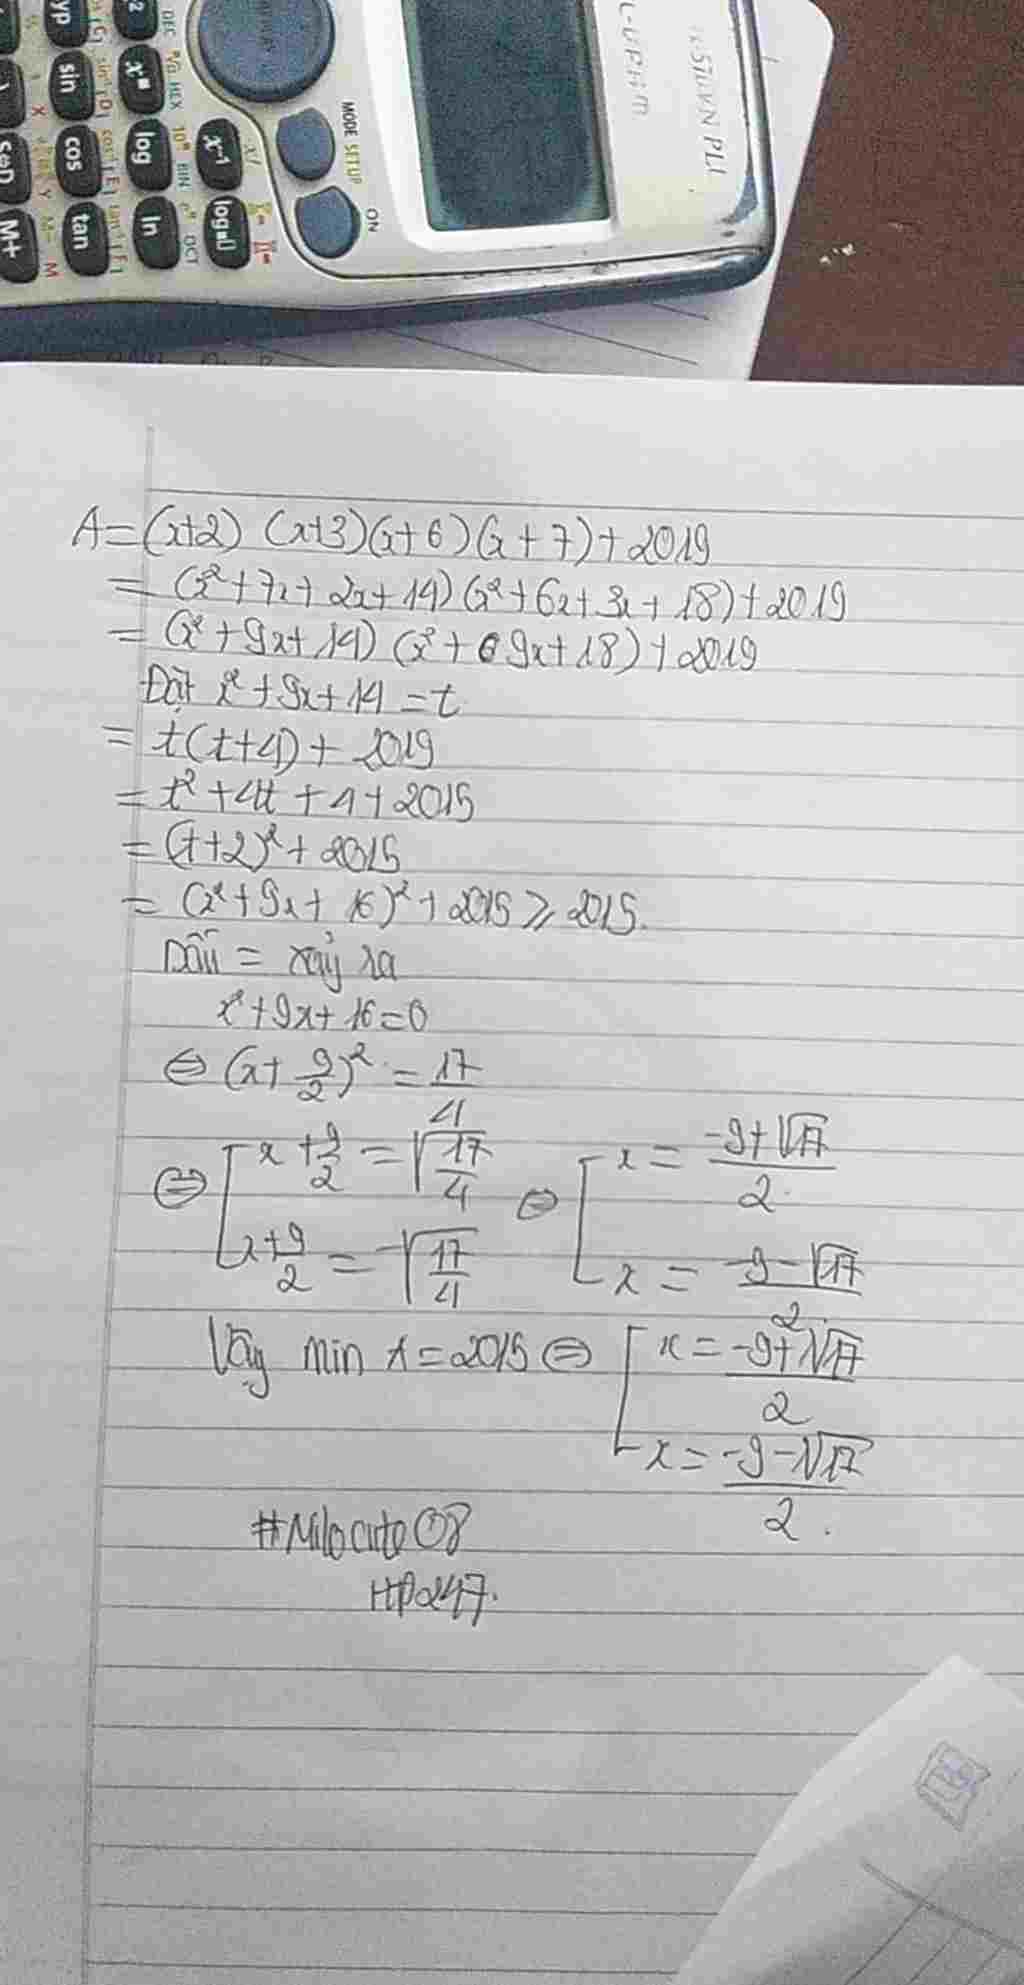 MODE SETUP
ON
DEC
HEX
BIN
OCT
sin
cos
tan
log
ln
x⁻¹
M+
A=(x+2) (x+3)(x+6)(x+7)+2019
= (x²+7x+2x+14)(x²+6x+3x+18)+2019
= (x²+9x+14) (x²+ 9x+18)+2019
Đặt x²+9x+14=t
= t(t+4)+ 2019
= t²+4t+4+2015
= (t+2)²+2015
= (x²+9x+ 16)²+2015 ≥ 2015.
Dấu = xảy ra
x²+9x+16=0
⇔ (x+ 9/2)² = 17/4
⇔ [ x + 9/2 = √(17/4) ⇔ [ x = (-9+√17)/2
x+9/2 = -√(17/4) x = (-9-√17)/2
Vậy min A=2015 ⇔ [ x = (-9+√17)/2
x = (-9-√17)/2.
#Milocute08
HP247.